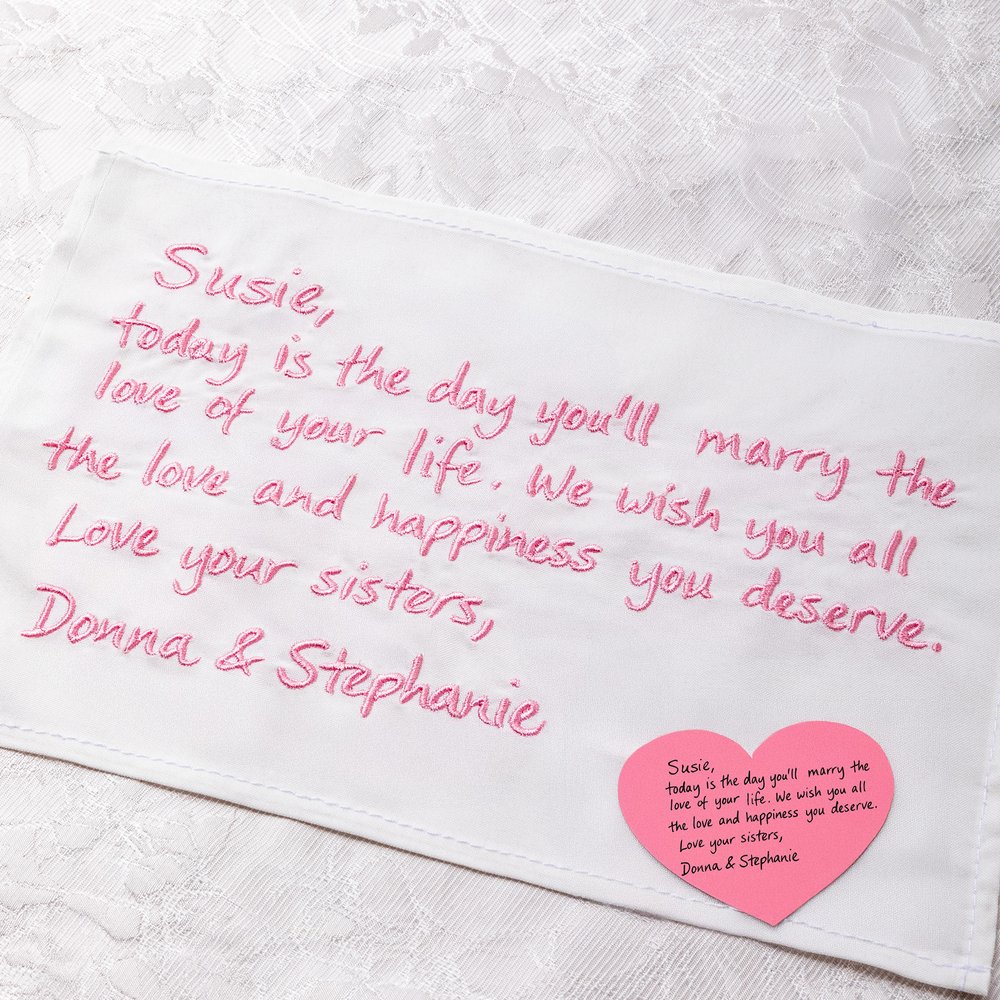 Susie,
today is the day you'll marry the
love of your life. We wish you all
the love and happiness you deserve.
Love your sisters,
Donna & Stephanie
Susie,
today is the day you'll marry the
love of your life. We wish you all
the love and happiness you deserve.
Love your sisters,
Donna & Stephanie